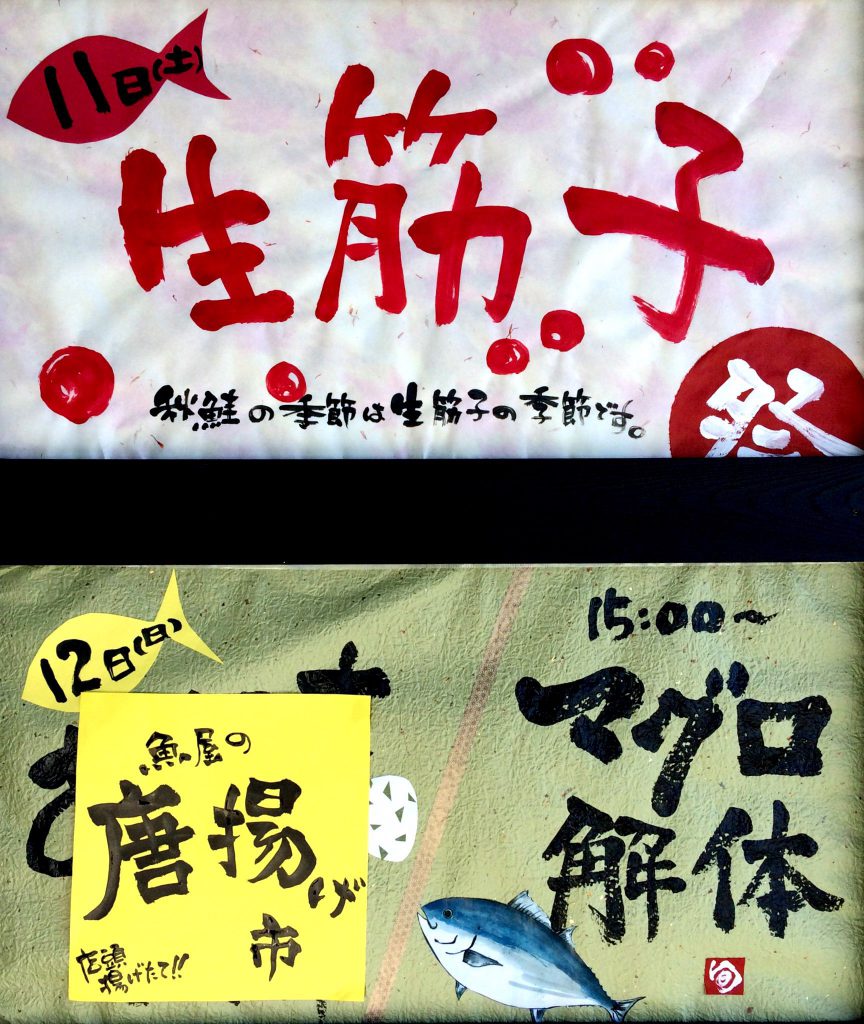 11日(土)
生筋子
秋鮭の季節は生筋子の季節です。
祭
12日(日)
魚屋の
唐揚げ
市
店頭
揚げたて!!
15:00~
マグロ
解体
旬